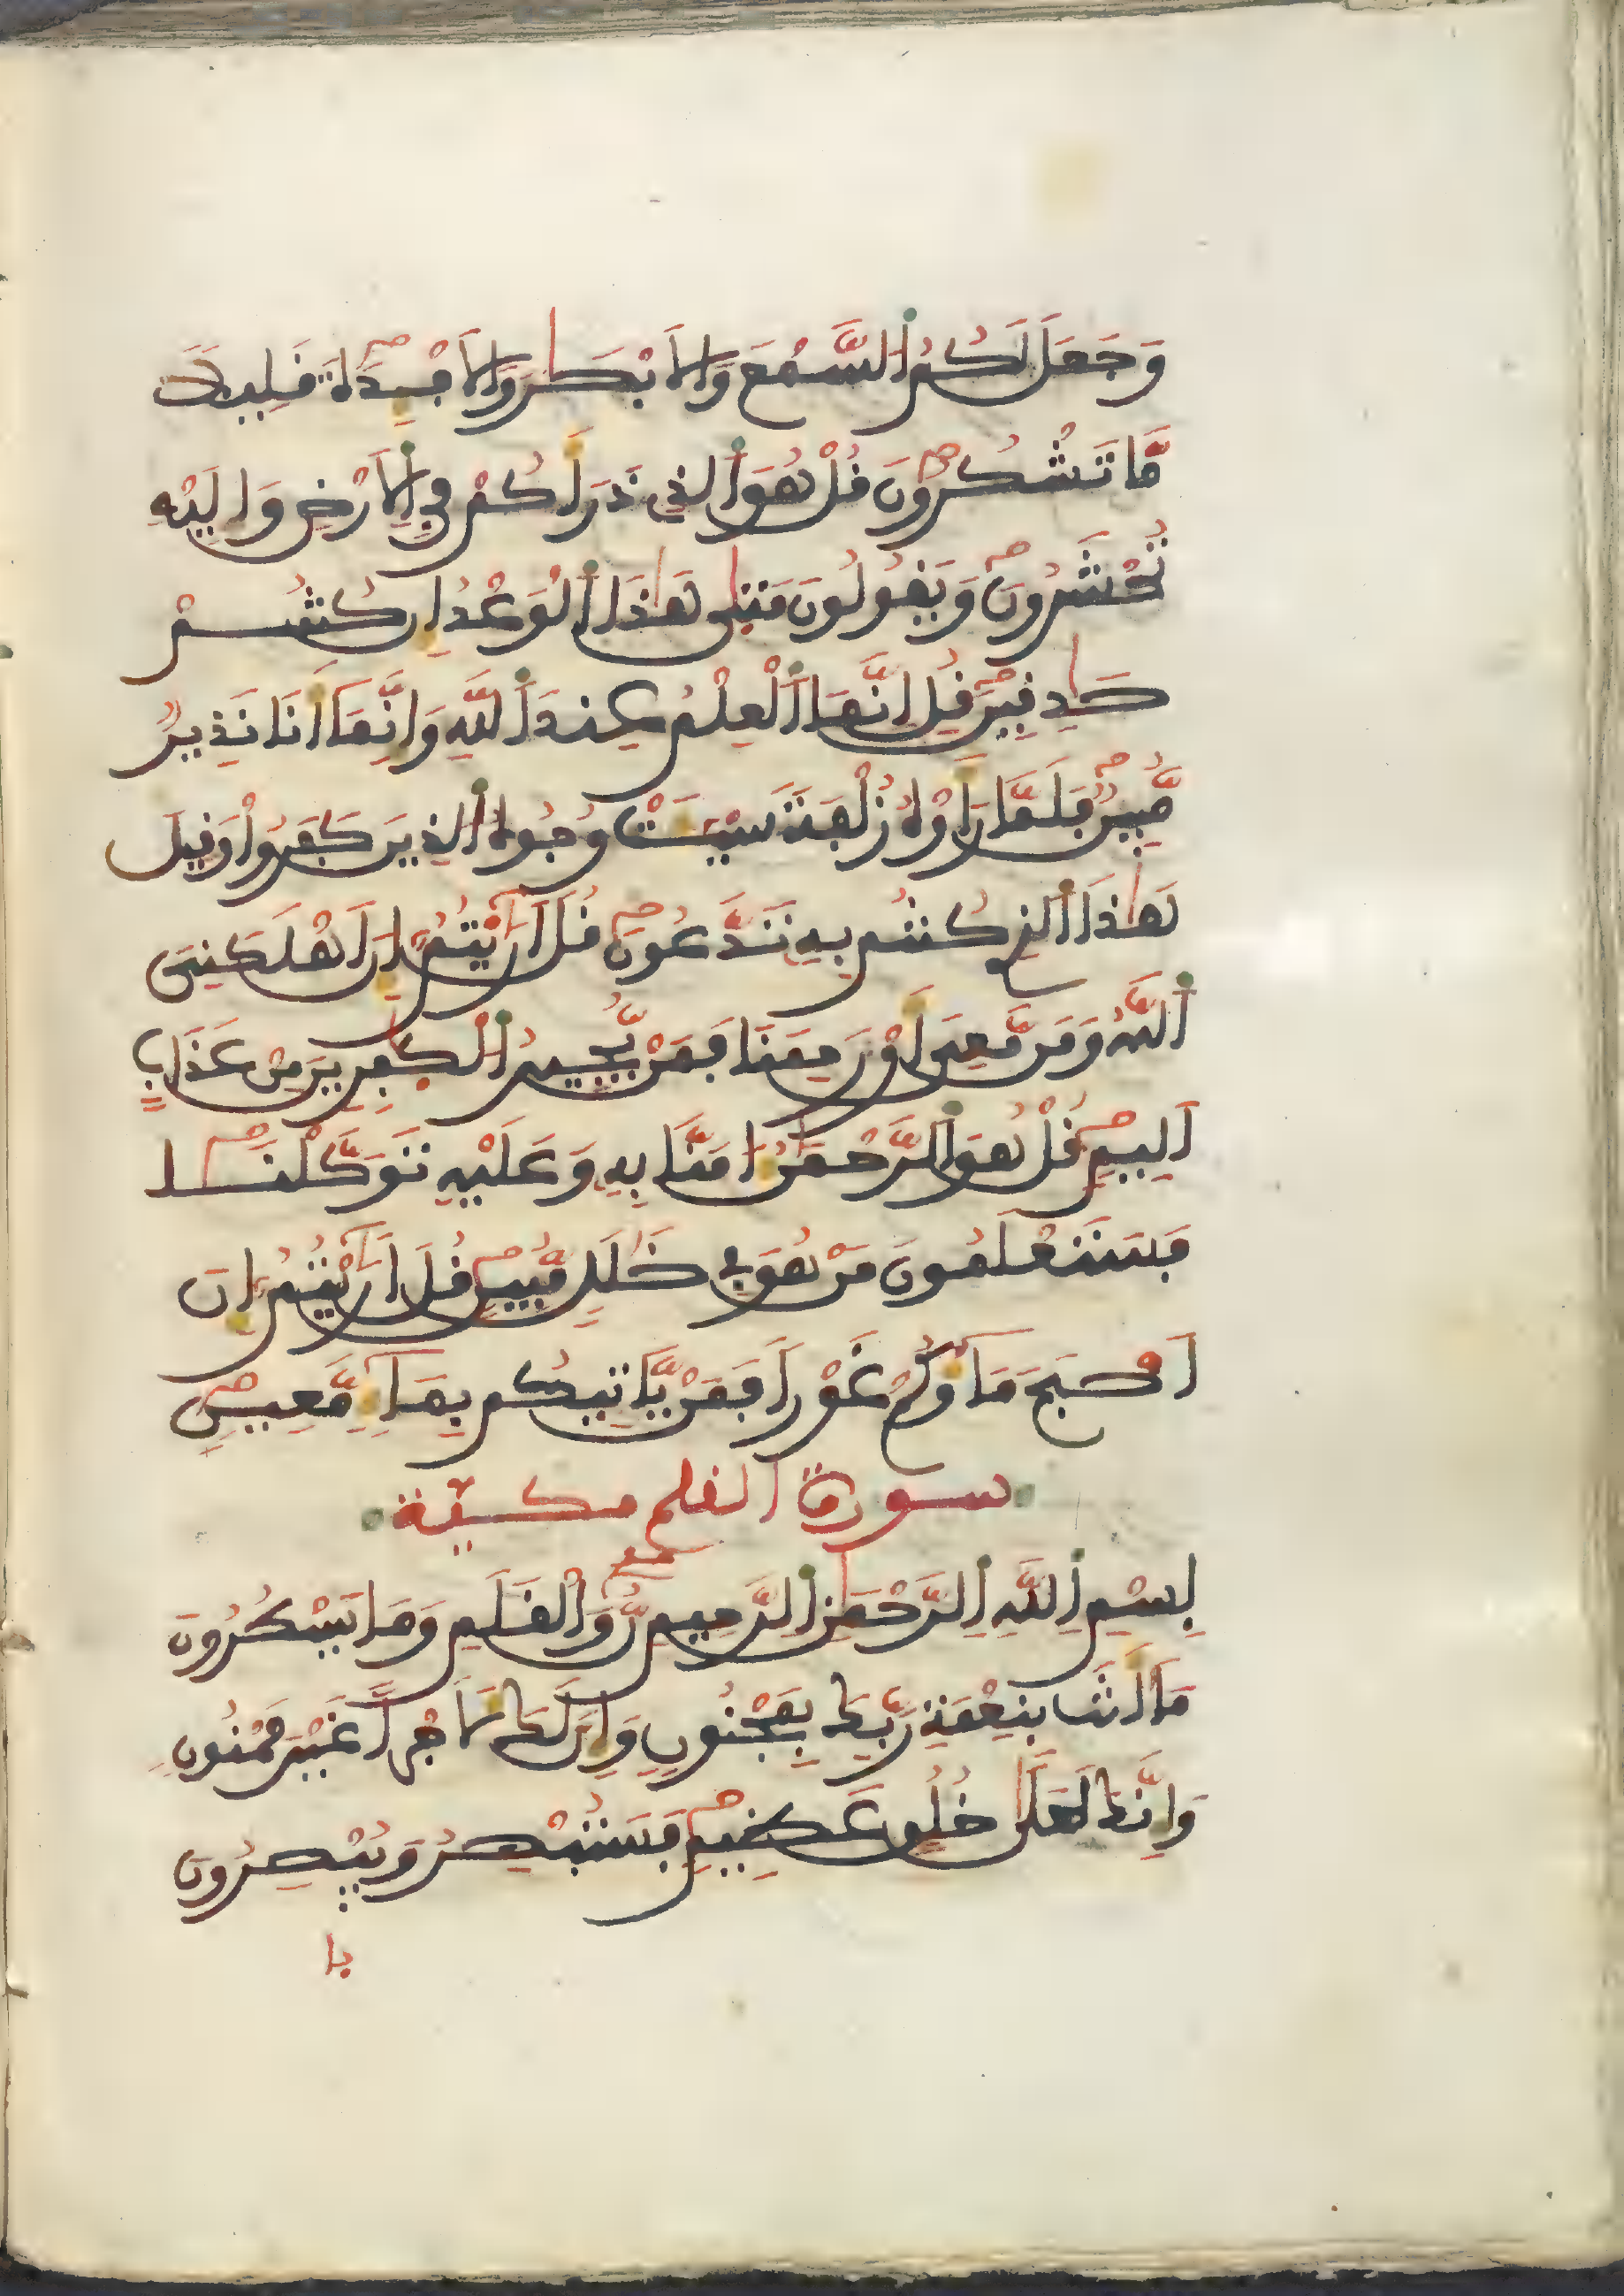 وَجَعَلَ لَكُمُ السَّمْعَ وَالاَبْصَٰرَ وَالاَفْـِٕدَةَ قَلِيلاً
مَّا تَشْكُرُونَ قُلْ هُوَ الذِے ذَرَأَكُمْ فِے الاَرْضِ وَإِلَيْهِ
تُحْشَرُونَ وَيَقُولُونَ مَتَىٰ هَٰذَا الْوَعْدُ إِن كُنتُمْ
صَٰدِقِينَ قُلِ انَّمَا الْعِلْمُ عِندَ اللَّهِ وَإِنَّمَا أَنَا نَذِيرٌ
مُّبِينٌ فَلَمَّا رَأَوْهُ زُلْفَةً سِيٓـَٔتْ وُجُوهُ الذِينَ كَفَرُواْ وَقِيلَ
هَٰذَا الذِے كُنتُم بِهِ تَدَّعُونَ قُلَ اَرَٰيْتُمُۥٓ إِنَ اَهْلَكَنِيَ
اللَّهُ وَمَن مَّعِيَ أَوْ رَحِمَنَا فَمَنْ يُّجِيرُ الْكَٰفِرِينَ مِنْ عَذَابٍ
اَلِيمٍ قُلْ هُوَ الرَّحْمَٰنُ ءَامَنَّا بِهِ وَعَلَيْهِ تَوَكَّلْنَا
فَسَتَعْلَمُونَ مَنْ هُوَ فِے ضَلَٰلٍ مُّبِينٍ قُلَ اَرَٰيْتُمُۥٓ إِنَ
اَصْبَحَ مَآؤُكُمْ غَوْراً فَمَنْ يَّاتِيكُم بِمَآءٍ مَّعِينٍ
سورة القلم مكيّة
بِسْمِ اللَّهِ الرَّحْمَٰنِ الرَّحِيمِ نٓ وَالْقَلَمِ وَمَا يَسْطُرُونَ
مَا أَنتَ بِنِعْمَةِ رَبِّكَ بِمَجْنُونٍ وَإِنَّ لَكَ لَأَجْراً غَيْرَ مَمْنُونٍ
وَإِنَّكَ لَعَلَىٰ خُلُقٍ عَظِيمٍ فَسَتُبْصِرُ وَيُبْصِرُونَ
با